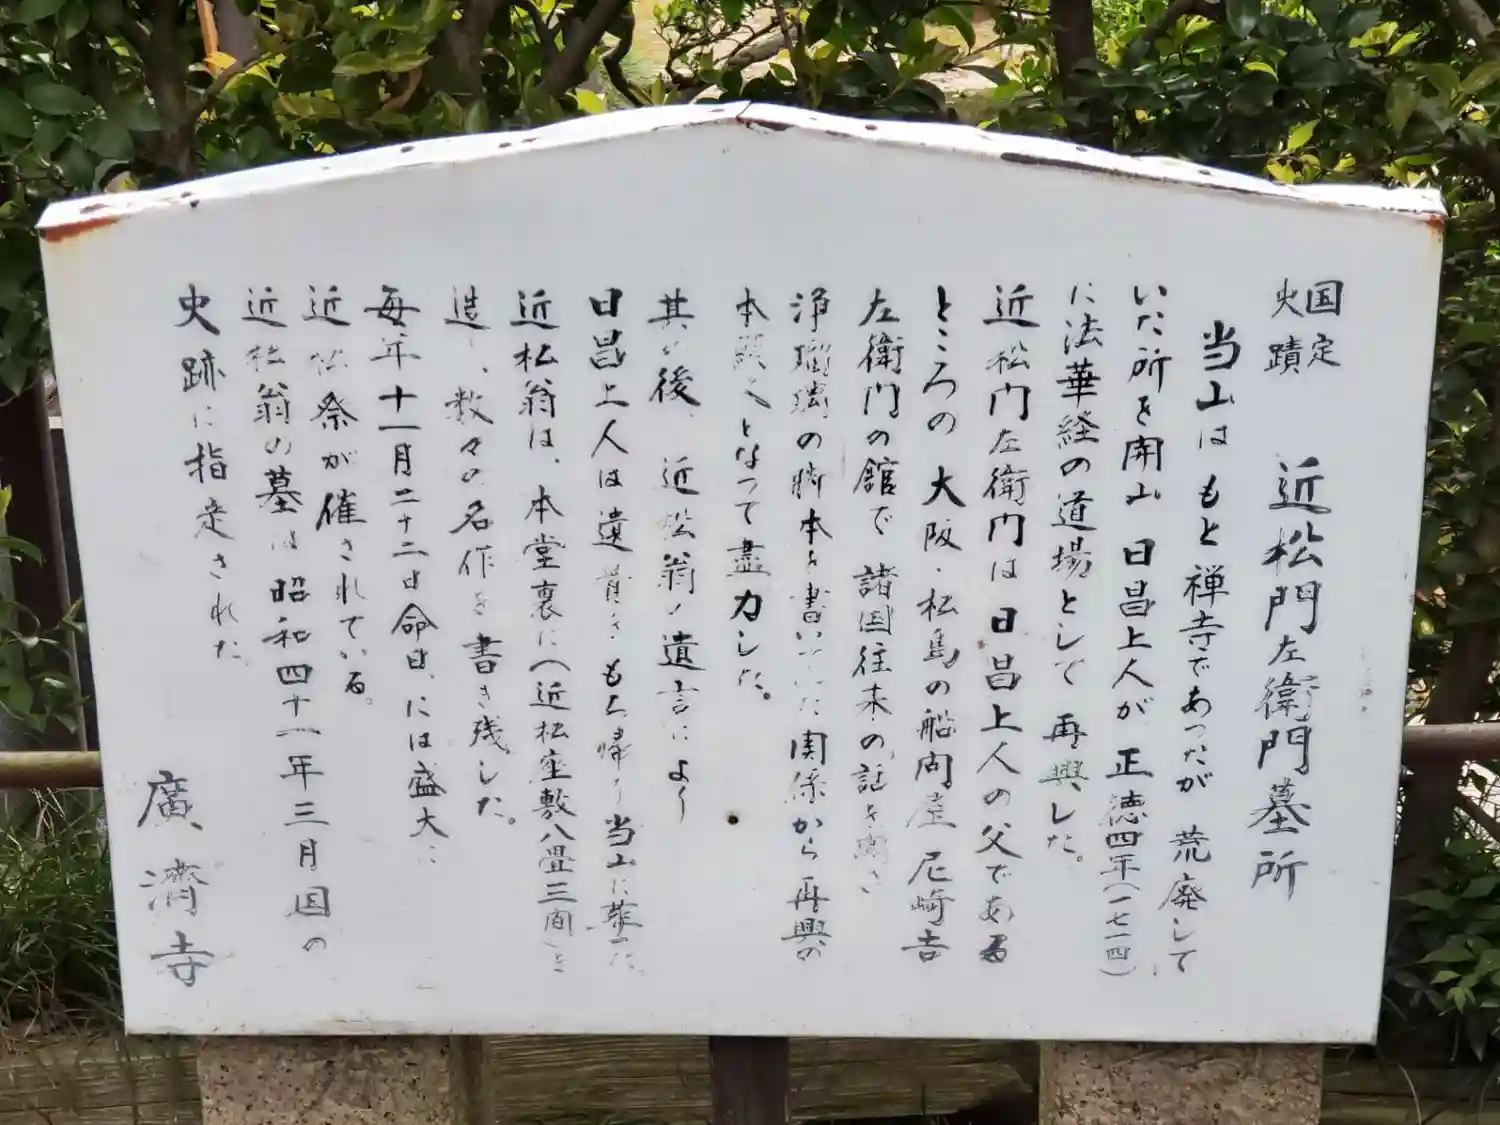 国定史蹟　近松門左衛門墓所
当山はもと禅寺であったが荒廃して
いた所を開山日昌上人が正徳四年(一七一四)
に法華経の道場として再興した。
近松門左衛門は日昌上人の父である
ところの大阪・松島の船問屋尼崎吉
左衛門の館で諸国往来の話を聞き
浄瑠璃の脚本を書いていた関係から再興の
本願人となって盡力した。
其の後、近松翁の遺言により
日昌上人は遺骨をもち帰り当山に葬った。
近松翁は、本堂裏に(近松座敷八畳三間)を
造り、数々の名作を書き残した。
毎年十一月二十二日命日には盛大に
近松祭が催されている。
近松翁の墓は昭和四十一年三月国の
史跡に指定された
廣濟寺